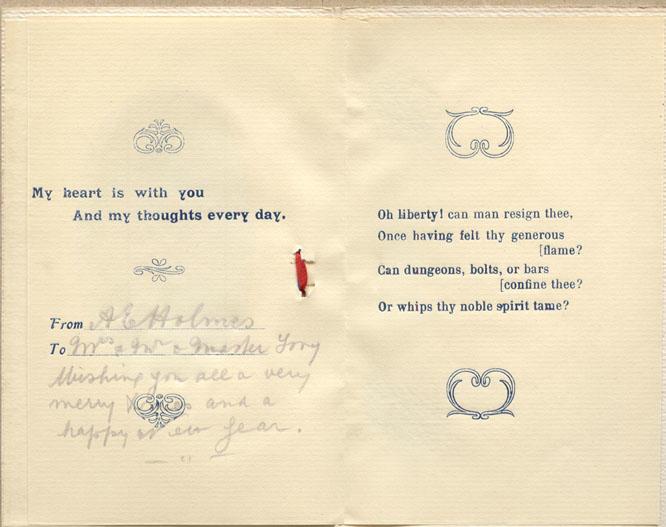 My heart is with you
And my thoughts every day.
From A E Holmes
To Mrs & Mr & Master
Wishing you all a very
merry and a
happy New Year.
Oh liberty! can man resign thee,
Once having felt thy generous
[flame?
Can dungeons, bolts, or bars
[confine thee?
Or whips thy noble spirit tame?